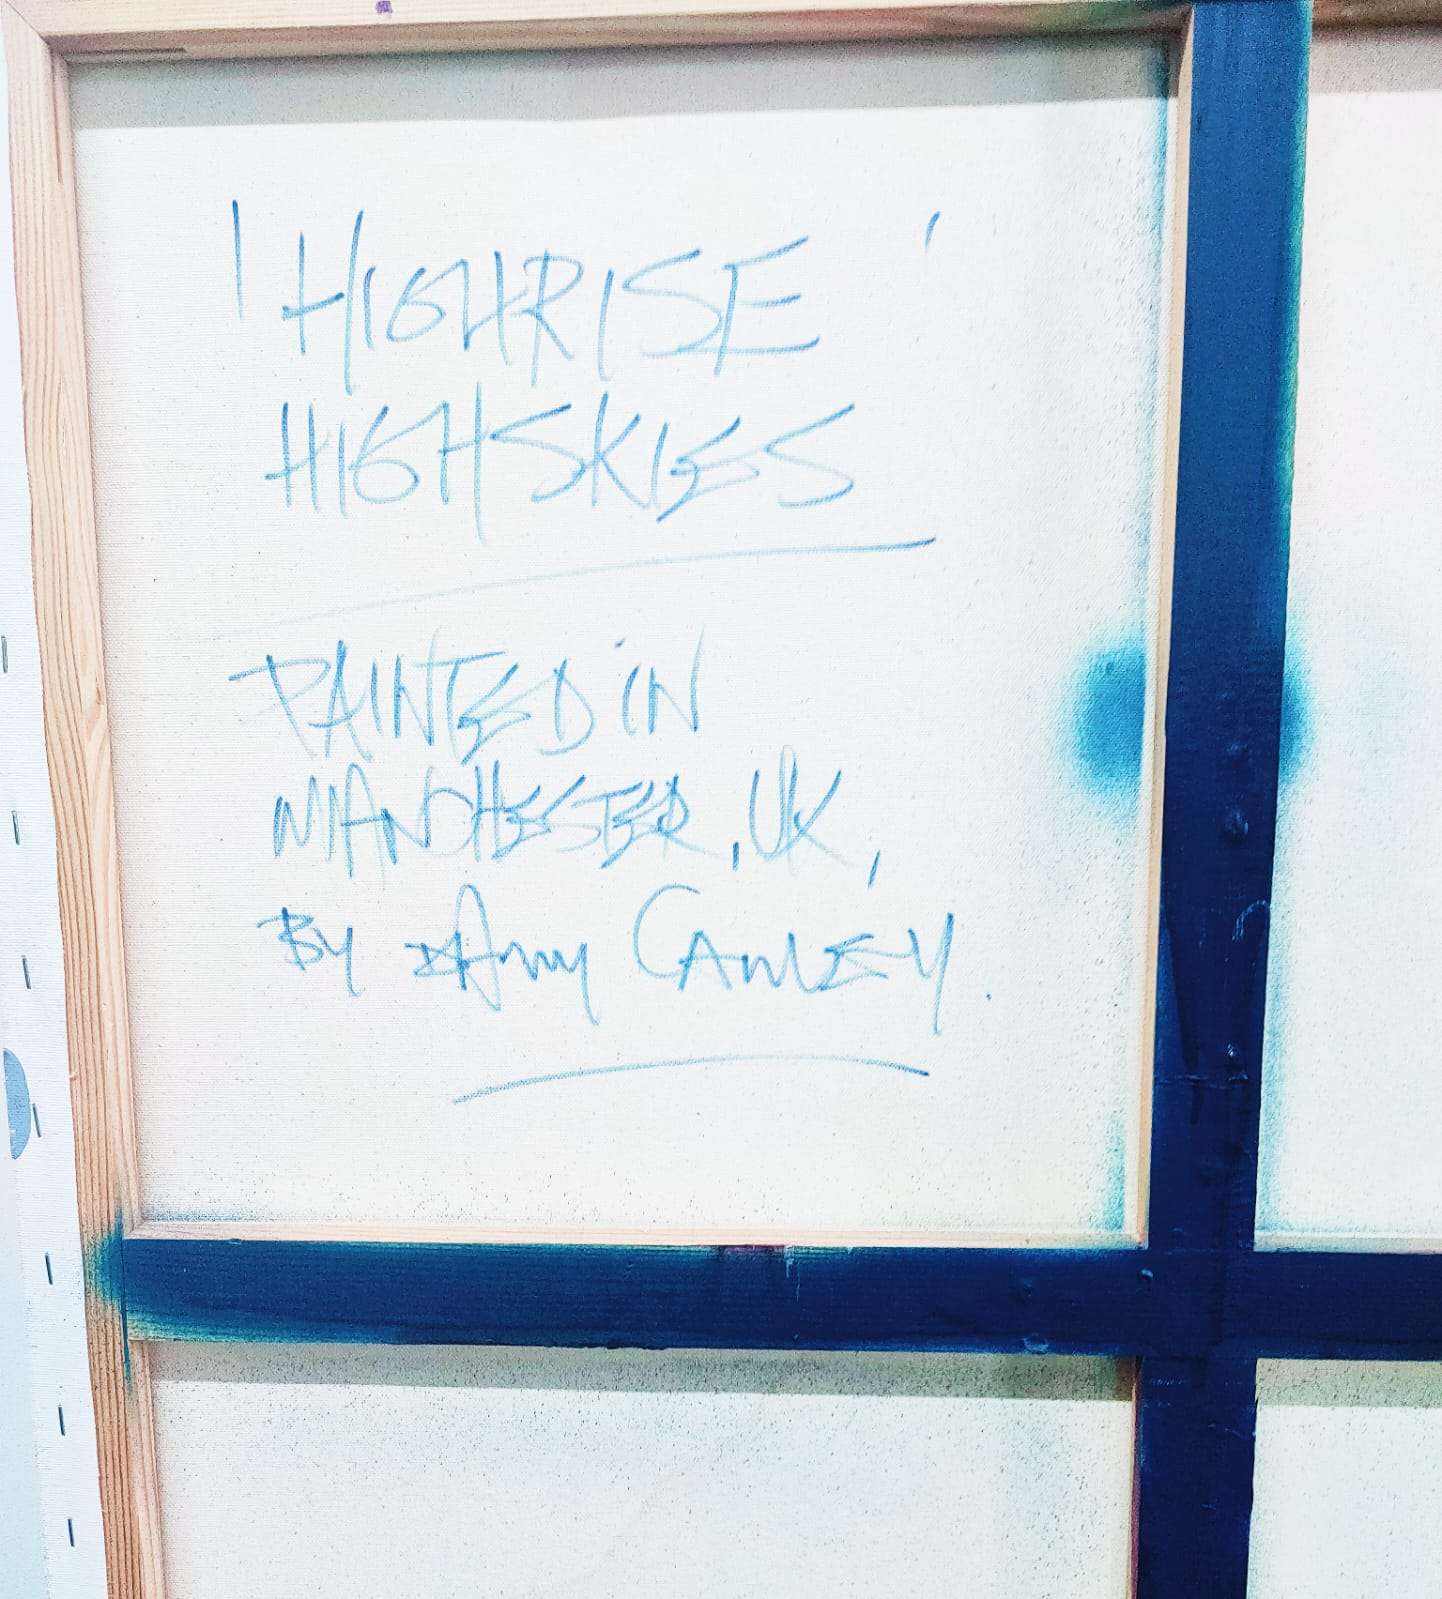 'HIGHRISE '
HIGHSKIES
PAINTED IN
MANCHESTER, UK,
BY DANNY CAWLEY.